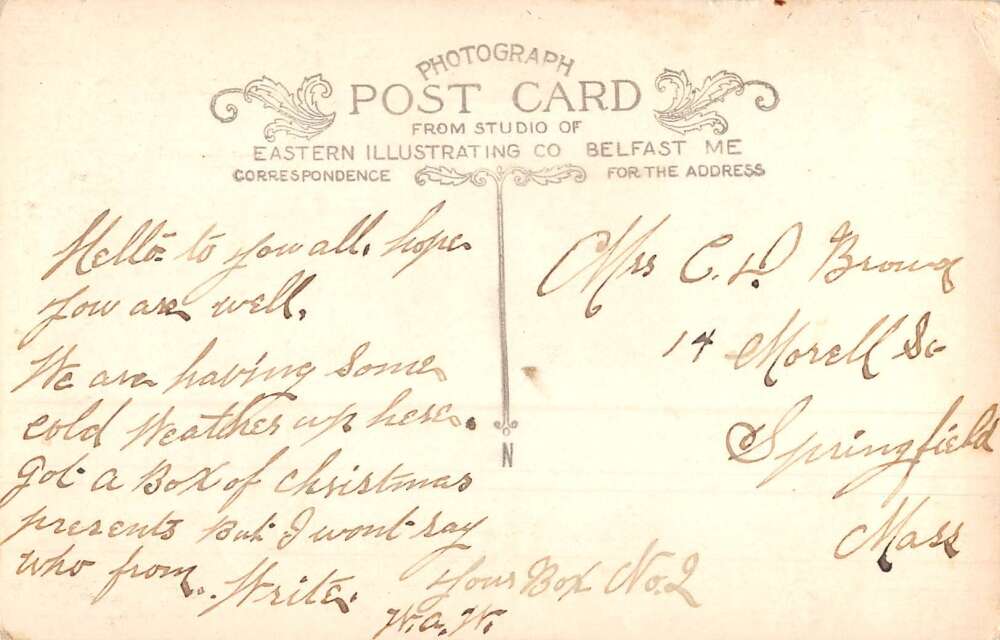 PHOTOGRAPH
POST CARD
FROM STUDIO OF
EASTERN ILLUSTRATING CO BELFAST ME
CORRESPONDENCE
FOR THE ADDRESS
Hello to you all, hope
you are well,
We are having Some
cold Weather up here.
Got a Box of christmas
presents But I wont say
who from. Write.
Your Box No. 2
W.a.W.
N
Mrs C. D. Brown
14 Morell St
Springfield
Mass